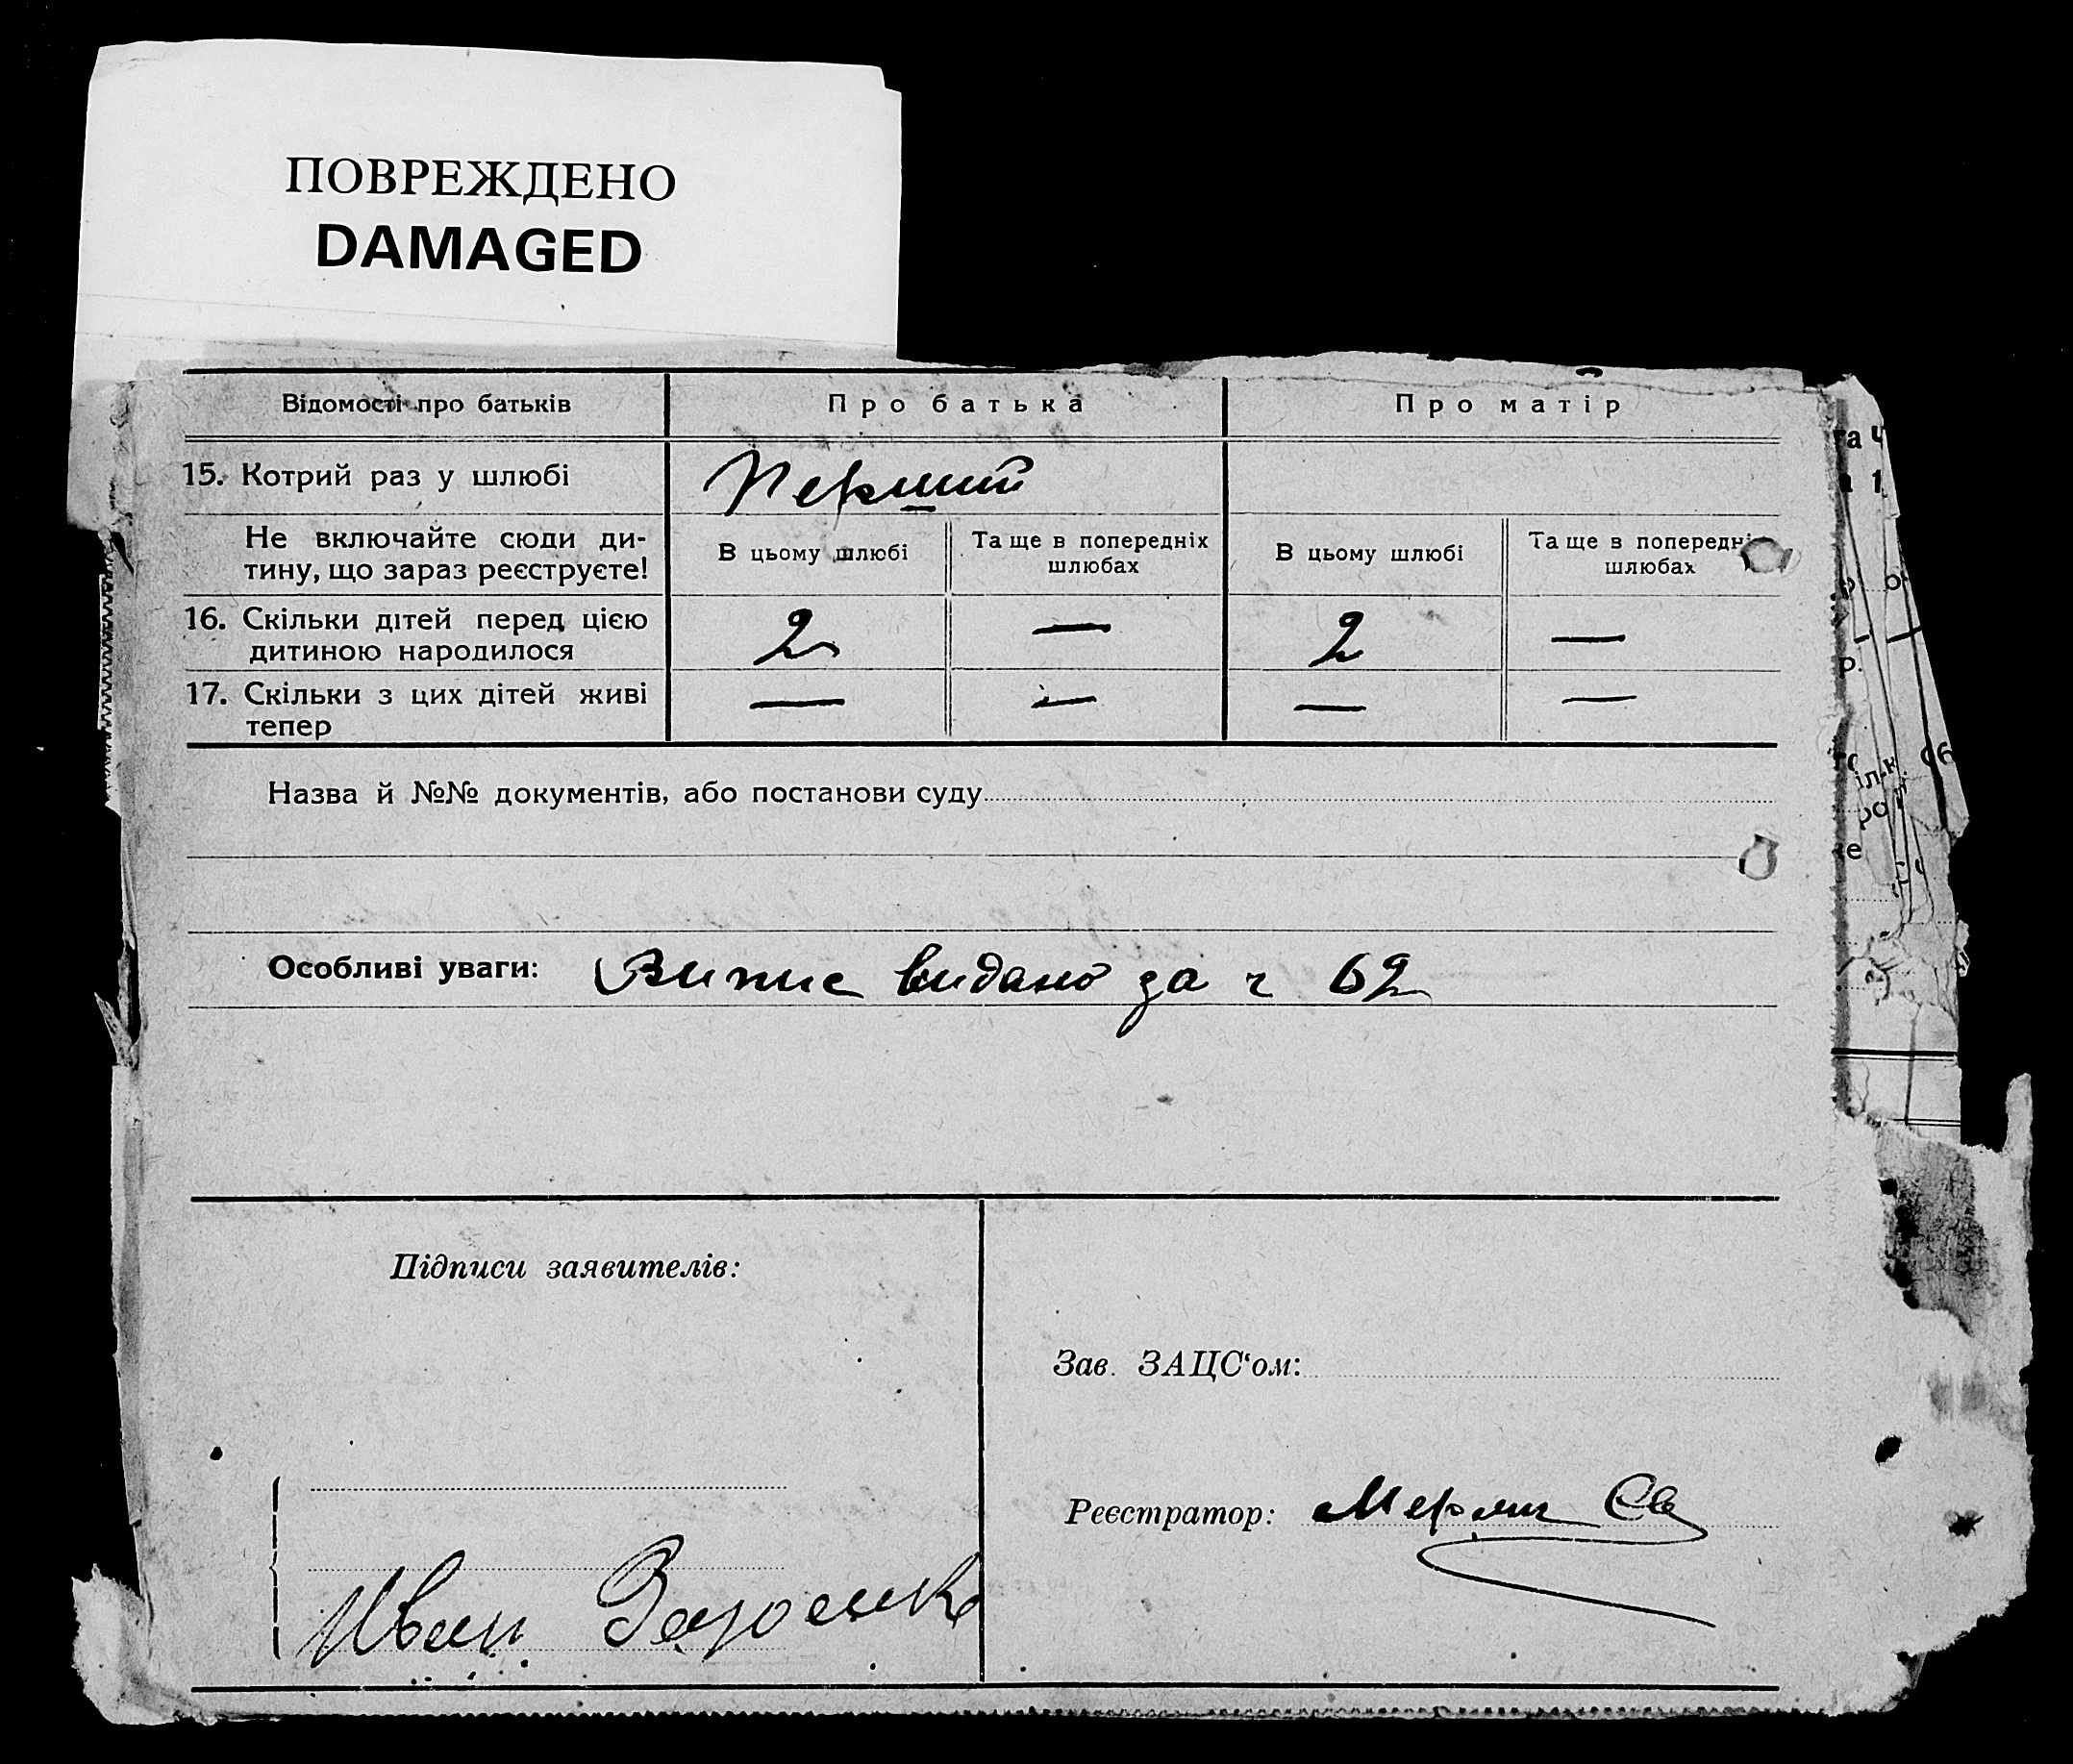 ПОВРЕЖДЕНО
DAMAGED
Відомості про батьків
Про батька
Про матір
15. Котрий раз у шлюбі
Перший
Не включайте сюди ди-
тину, що зараз реєструєте!
В цьому шлюбі
Та ще в попередніх
шлюбах
В цьому шлюбі
Та ще в попередніх
шлюбах
16. Скільки дітей перед цією
дитиною народилося
2 — 2 —
17. Скільки з цих дітей живі
тепер
— — — —
Назва й №№ документів, або постанови суду
Особливі уваги: Випис видано за ч 62
Підписи заявителів:
Зав. ЗАЦС‘ом:
Реєстратор:
Иван